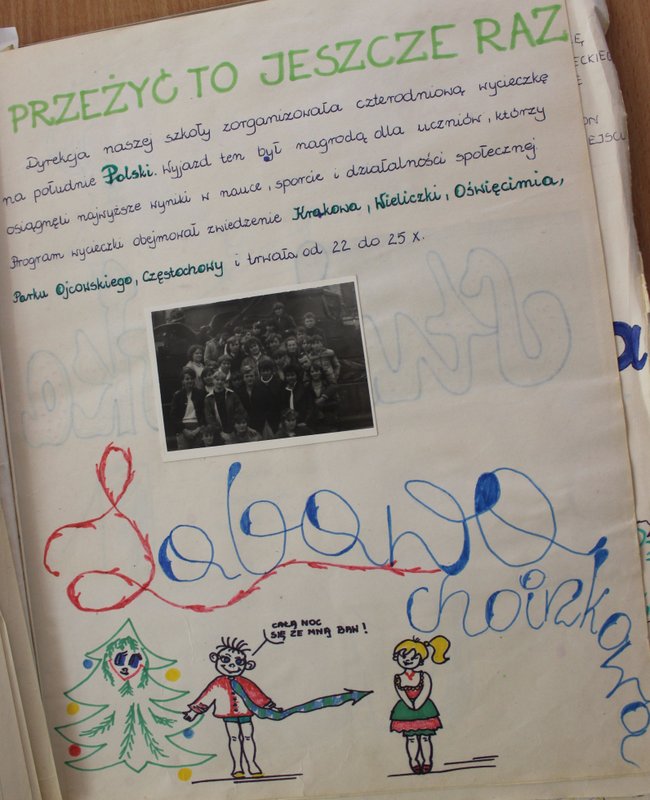 PRZEŻYĆ TO JESZCZE RAZ
Dyrekcja naszej szkoły zorganizowała czterodniową wycieczkę
na południe Polski. Wyjazd ten był nagrodą dla uczniów, którzy
osiągnęli najwyższe wyniki w nauce, sporcie i działalności społecznej
Program wycieczki obejmował zwiedzenie Krakowa, Wieliczki, Oświęcimia,
Parku Ojcowskiego, Częstochowy i trwała od 22 do 25 X.
Zabawa
choinkowa
CAŁĄ NOC
SIĘ ZE MNĄ BAW!